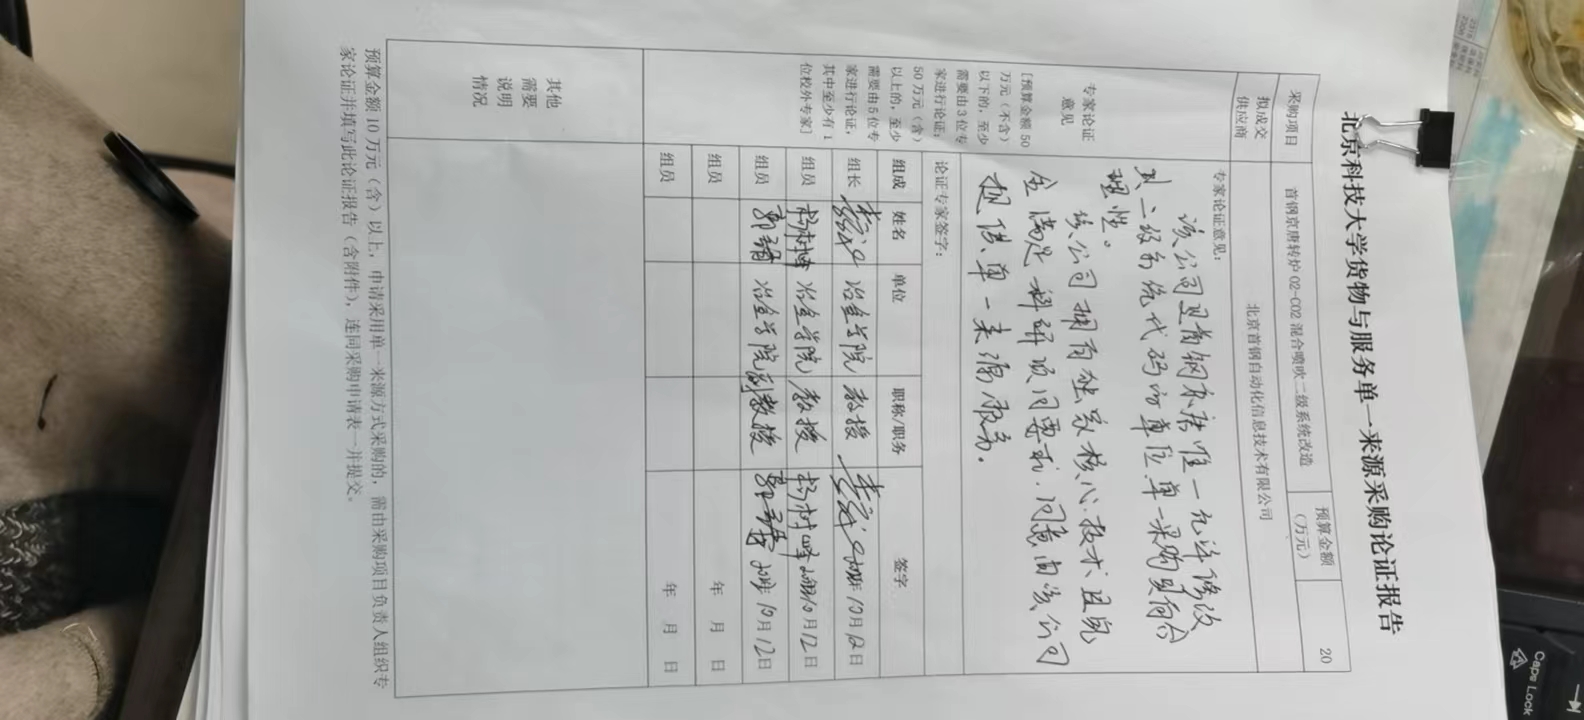 北京科技大学货物与服务单一来源采购论证报告
采购项目 首钢京唐转炉 O2-CO2 混合喷吹二级系统改造 预算金额（万元） 20
拟成交供应商 北京首钢自动化信息技术有限公司
专家论证意见
[预算金额 50
万元（不含）
以下的，至少
需要由 3 位专
家进行论证；
50 万元（含）
以上的，至少
需要由 5 位专
家进行论证，
其中至少有 1
位校外专家]
专家论证意见：
该公司是首钢京唐唯一允许修改
其二级系统代码的单位,单一采购具有合
理性。
该公司拥有独家核心技术,且完
全满足科研项目要求,同意由该公司
提供单一来源服务。
论证专家签字：
组成 姓名 单位 职称/职务 签字
组长 冶金学院 教授 10月12日
组员 杨树峰 冶金学院 教授 杨树峰 10月12日
组员 冶金学院 副教授 10月12日
组员 年 月 日
组员 年 月 日
其他
需要
说明
情况
预算金额 10 万元（含）以上，申请采用单一来源方式采购的，需由采购项目负责人组织专
家论证并填写此论证报告（含附件），连同采购申请表一并提交。
Caps Lock